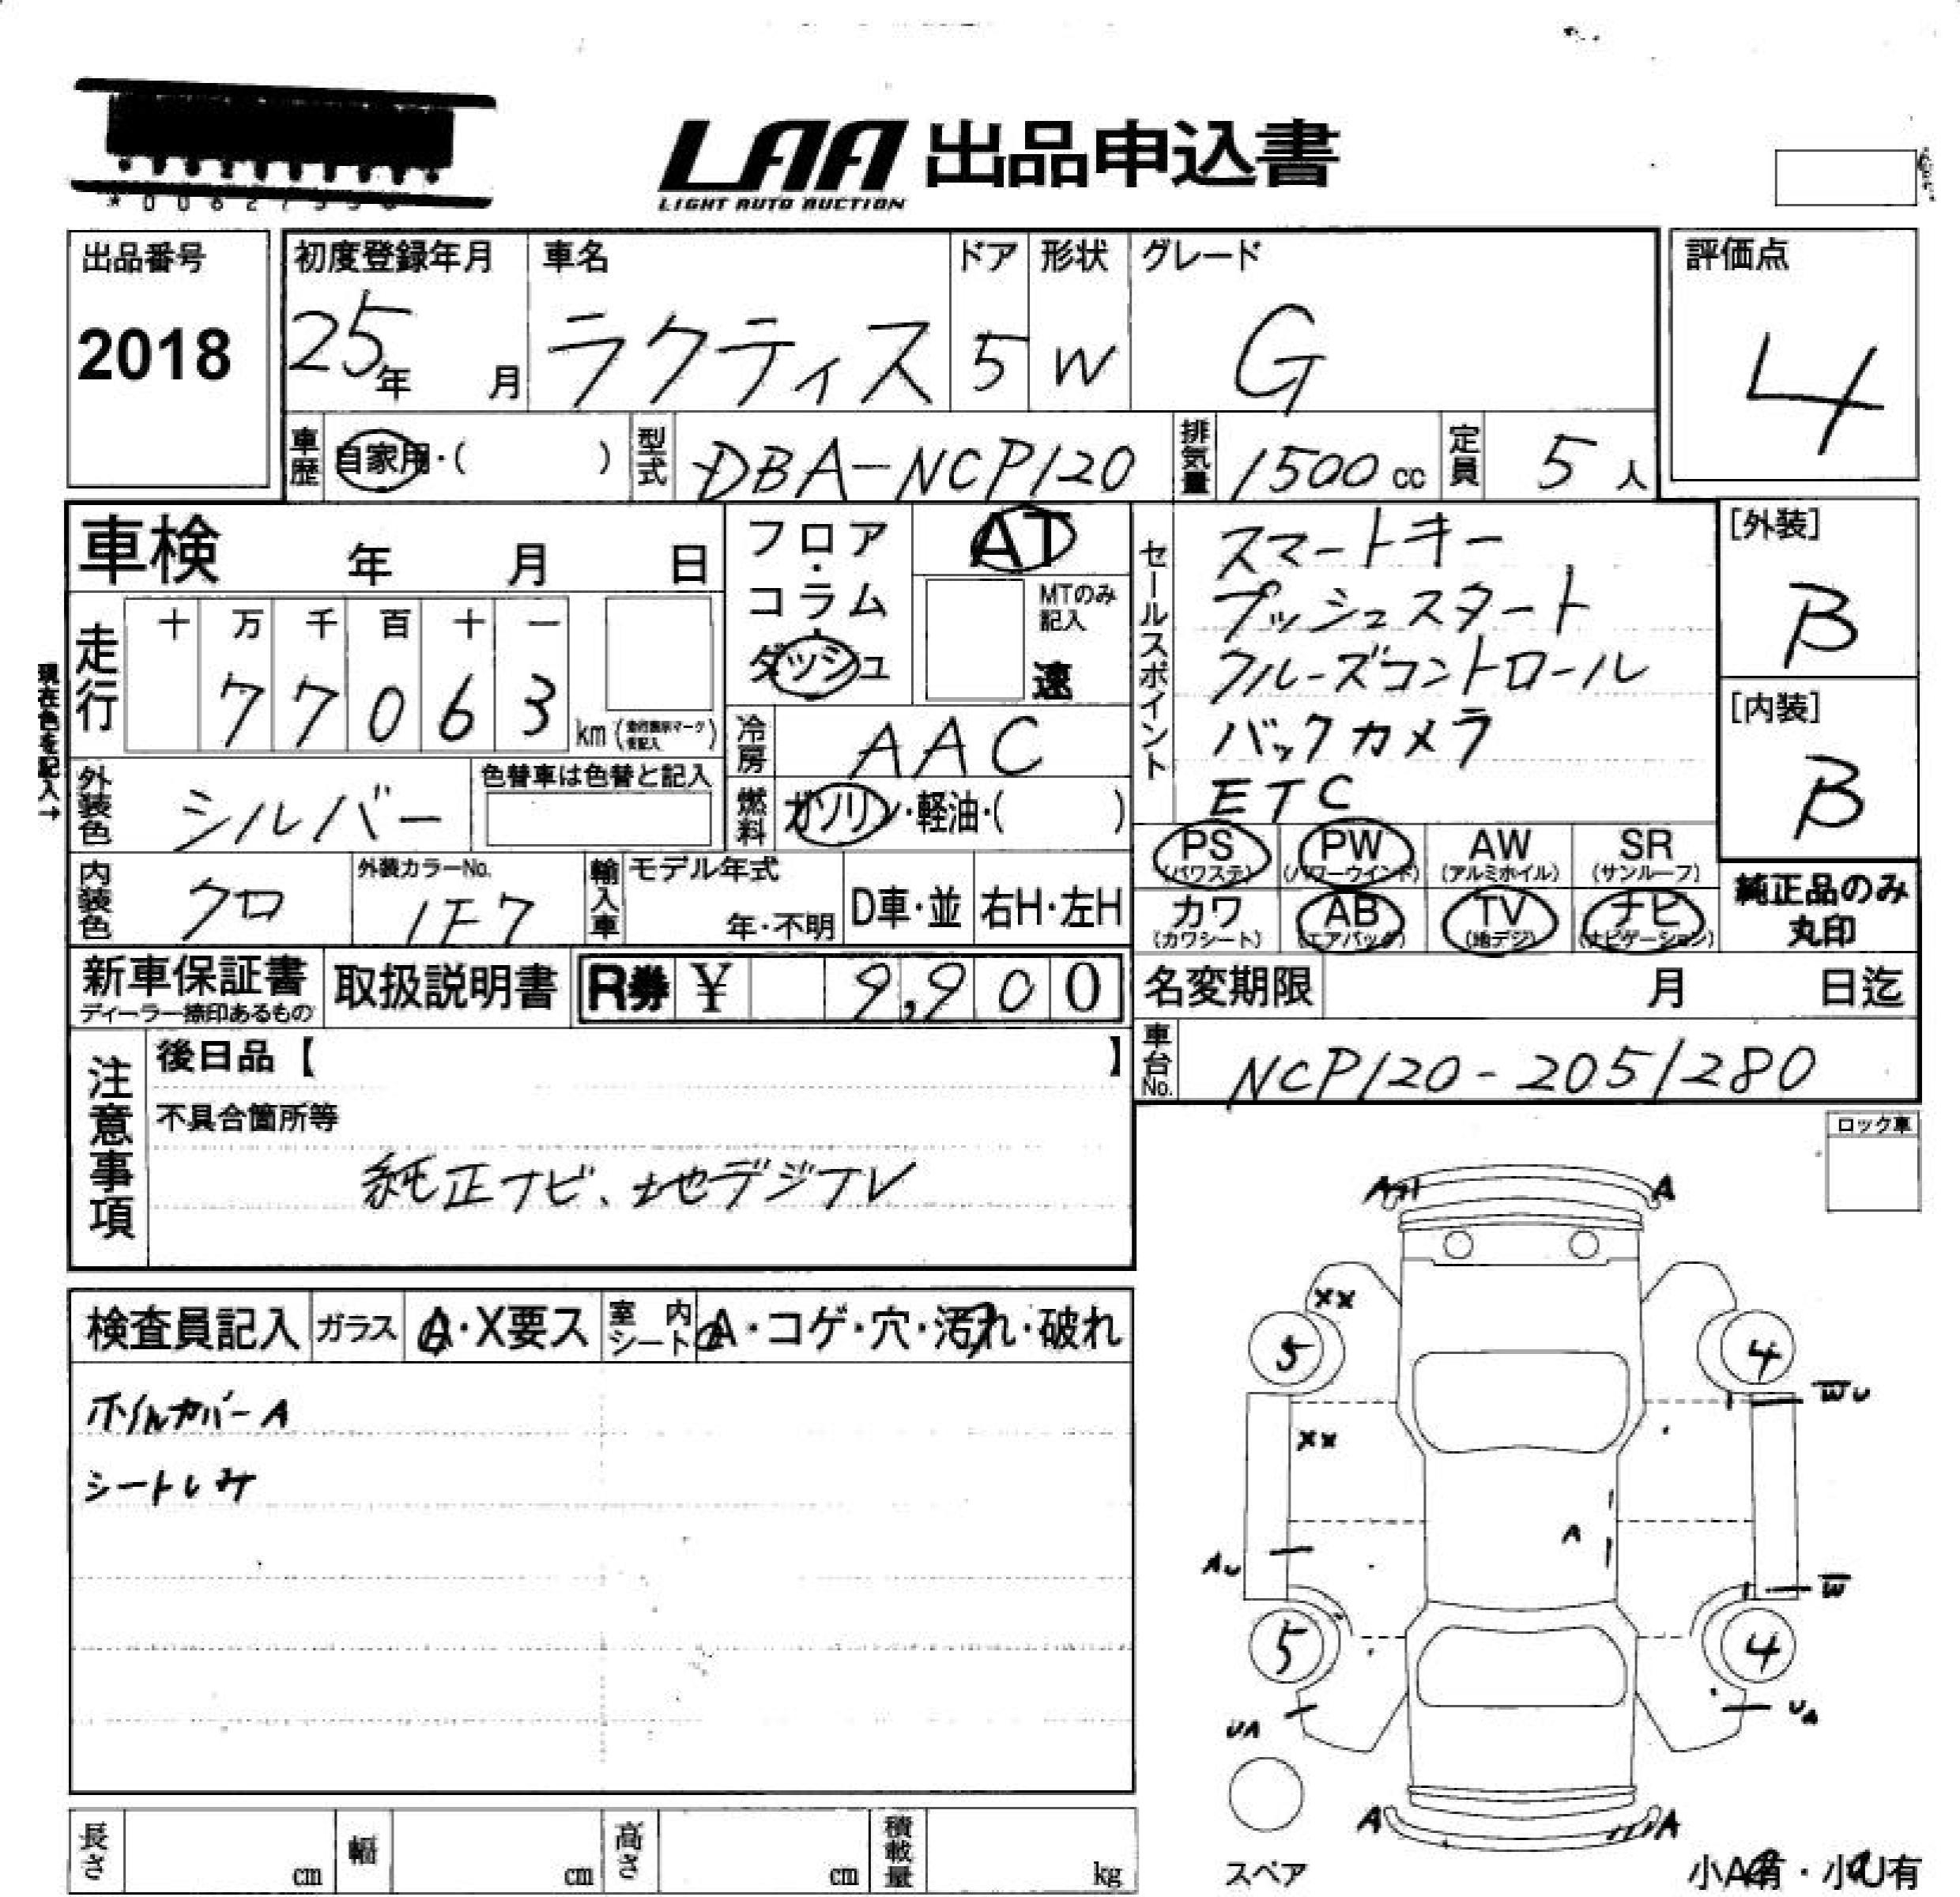 LAA 出品申込書
LIGHT AUTO AUCTION
出品番号
2018
初度登録年月 車名 ドア 形状 グレード
25年 月 ラクティス 5 W G
評価点
4
車歴 自家用・( ) 型式 DBA-NCP120 排気量 1500cc 定員 5人
車検 年 月 日
フロア・コラム・ダッシュ
AT
MTのみ記入
速
セールスポイント
スマートキー
プッシュスタート
クルーズコントロール
バックカメラ
ETC
[外装]
B
[内装]
B
現在色を記入→
走行 十 万 千 百 十 一
77063 km
冷房 AAC
外装色 シルバー 色替車は色替と記入
燃料 ガソリン・軽油・( )
PS (パワステ) PW (パワーウインド) AW (アルミホイル) SR (サンルーフ)
カワ (カワシート) AB (エアバッグ) TV (地デジ) ナビ (ナビゲーション)
純正品のみ丸印
内装色 クロ 外装カラーNo. 1F7 輸入車 モデル年式 年・不明 D車・並 右H・左H
新車保証書 ディーラー捺印あるもの 取扱説明書 R券 ¥ 9,900
名変期限 月 日迄
車台No. NCP120-2051280
注意事項
後日品【 】
不具合箇所等
純正ナビ、地デジTV
ロック車
検査員記入 ガラス A・X要ス 室内シート A・コゲ・穴・汚れ・破れ
ホイルカバーA
シートしみ
A A
XX
5 4
WU
XX
A
AU
W
5 4
UA UA
A A
スペア
小A有・小U有
長さ cm 幅 cm 高さ cm 積載量 kg